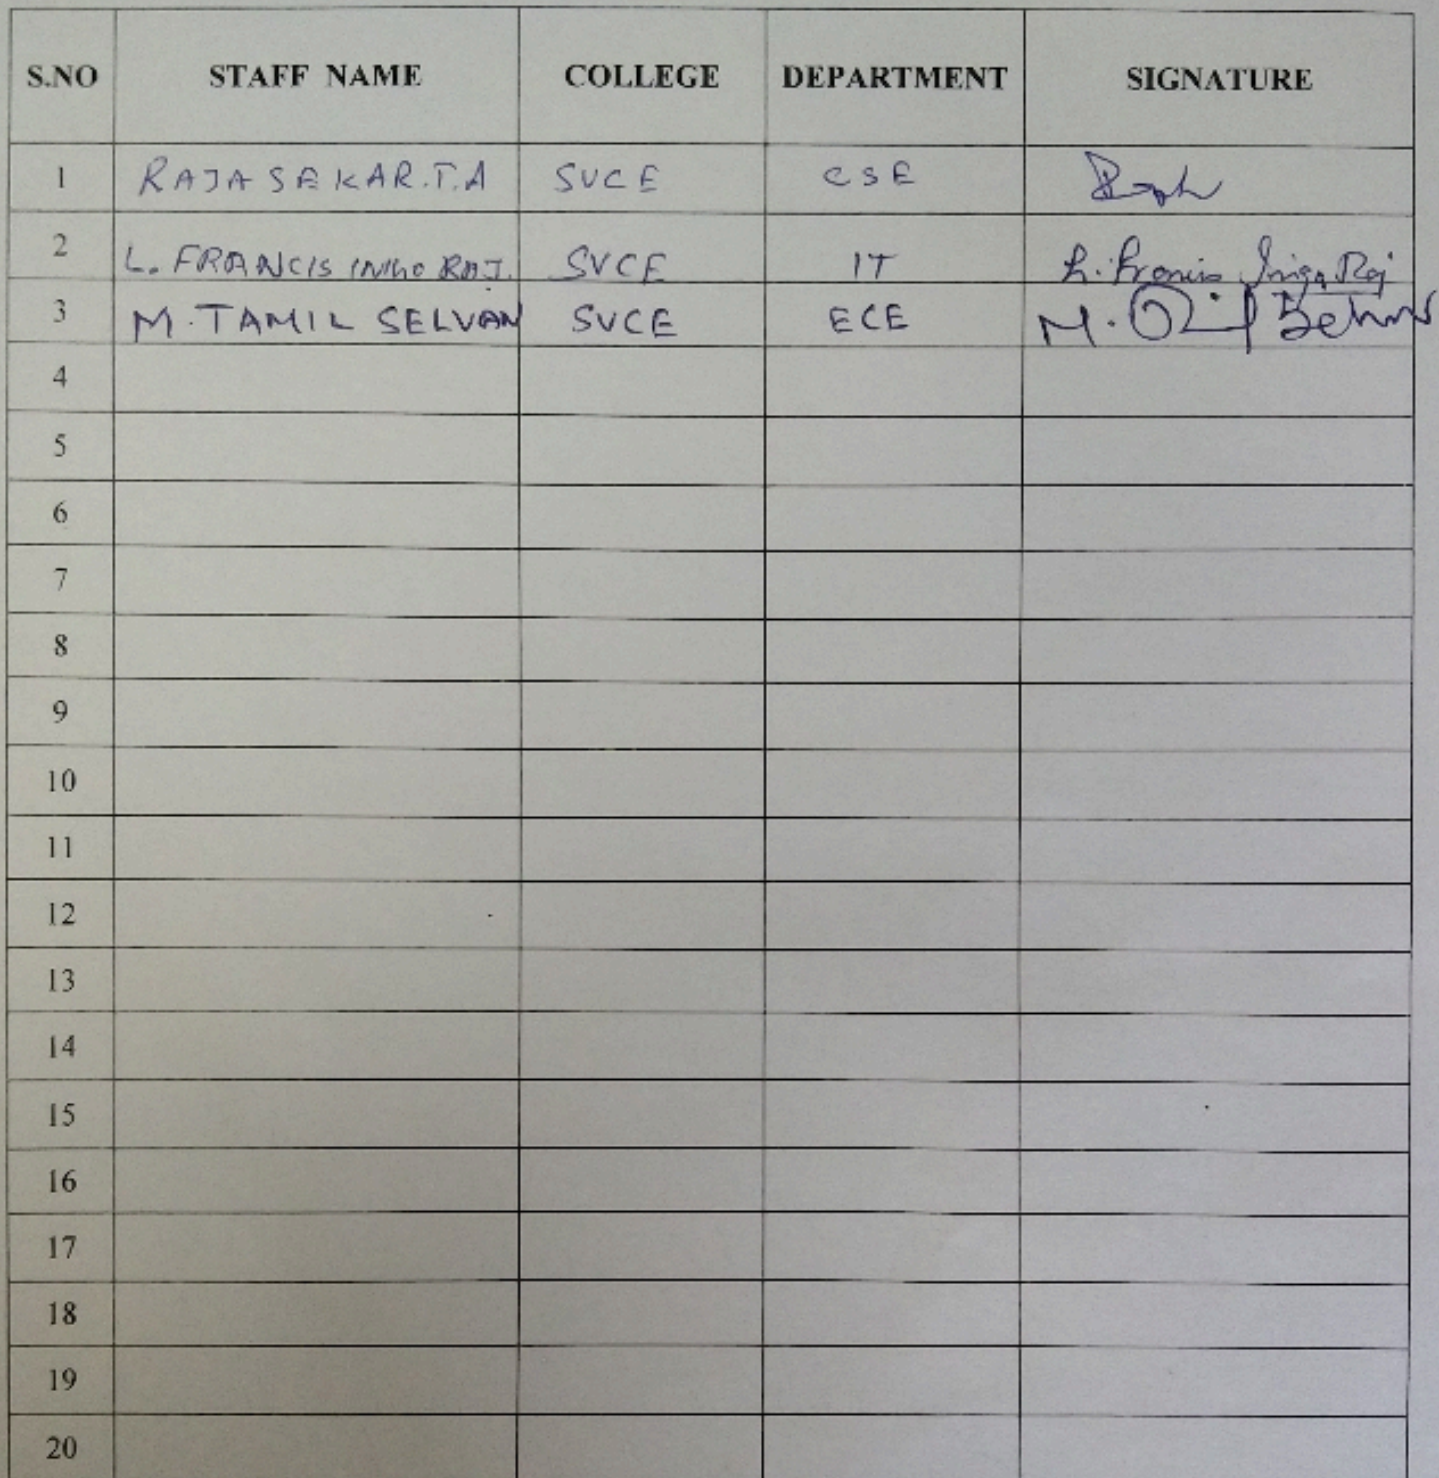 S.NO STAFF NAME COLLEGE DEPARTMENT SIGNATURE
1 RAJASEKAR.T.A SVCE CSE
2 L. FRANCIS INIGO RAJ. SVCE IT L. Francis Inigo Raj
3 M. TAMIL SELVAN SVCE ECE M.
4
5
6
7
8
9
10
11
12
13
14
15
16
17
18
19
20